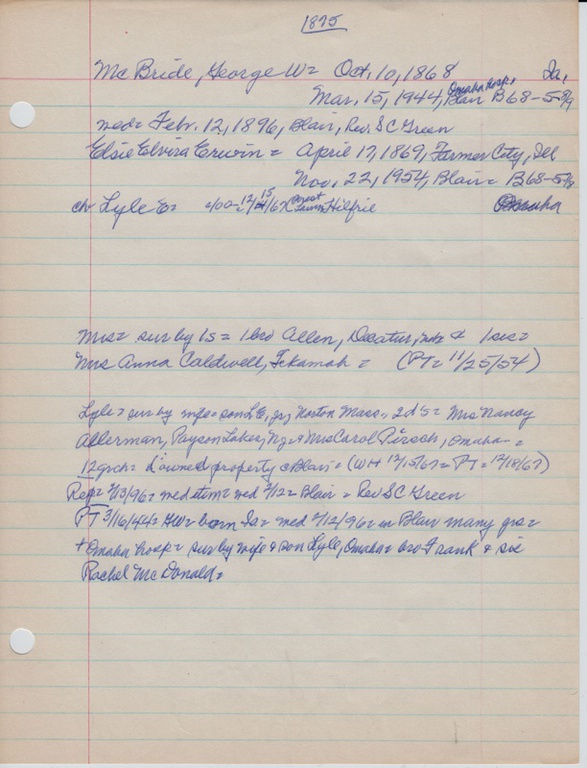 1875
McBride, George W= Oct. 10, 1868 Ia.
Omaha hosp.
Mar. 15, 1944, Blair B68-5-
med= Febr. 12, 1896, Blair, Rev. SC Green
Elsie Elvira Erwin = April 17, 1869, Farmer City, Ill
Nov. 22, 1954, Blair= B68-5-
ch Lyle E= c/00= 12/15/67 Forest Lawn Hilfrie Omaha
Mrs= sur by 1s= 1 bro Allen, Decatur, & 1 sis=
Mrs Anna Caldwell, Tekamah = (PT= 11/25/54)
Lyle= sur by wife= son L.E., jr, Norton Mass., 2 d's= Mrs Nancy
Allerman, Payson Lakes, NJ & Mrs Carol Pirsch, Omaha=
12 grch= owned property c Blair= (WH 12/15/67= PT= 12/18/67)
Rep= 2/13/96= med item= med 2/12= Blair = Rev SC Green
PT 3/16/44= GW= born Ia= med 2/12/96= in Blair many yrs=
+ Omaha hosp= sur by wife & son Lyle, Omaha= bro Frank & sis
Rachel McDonald=